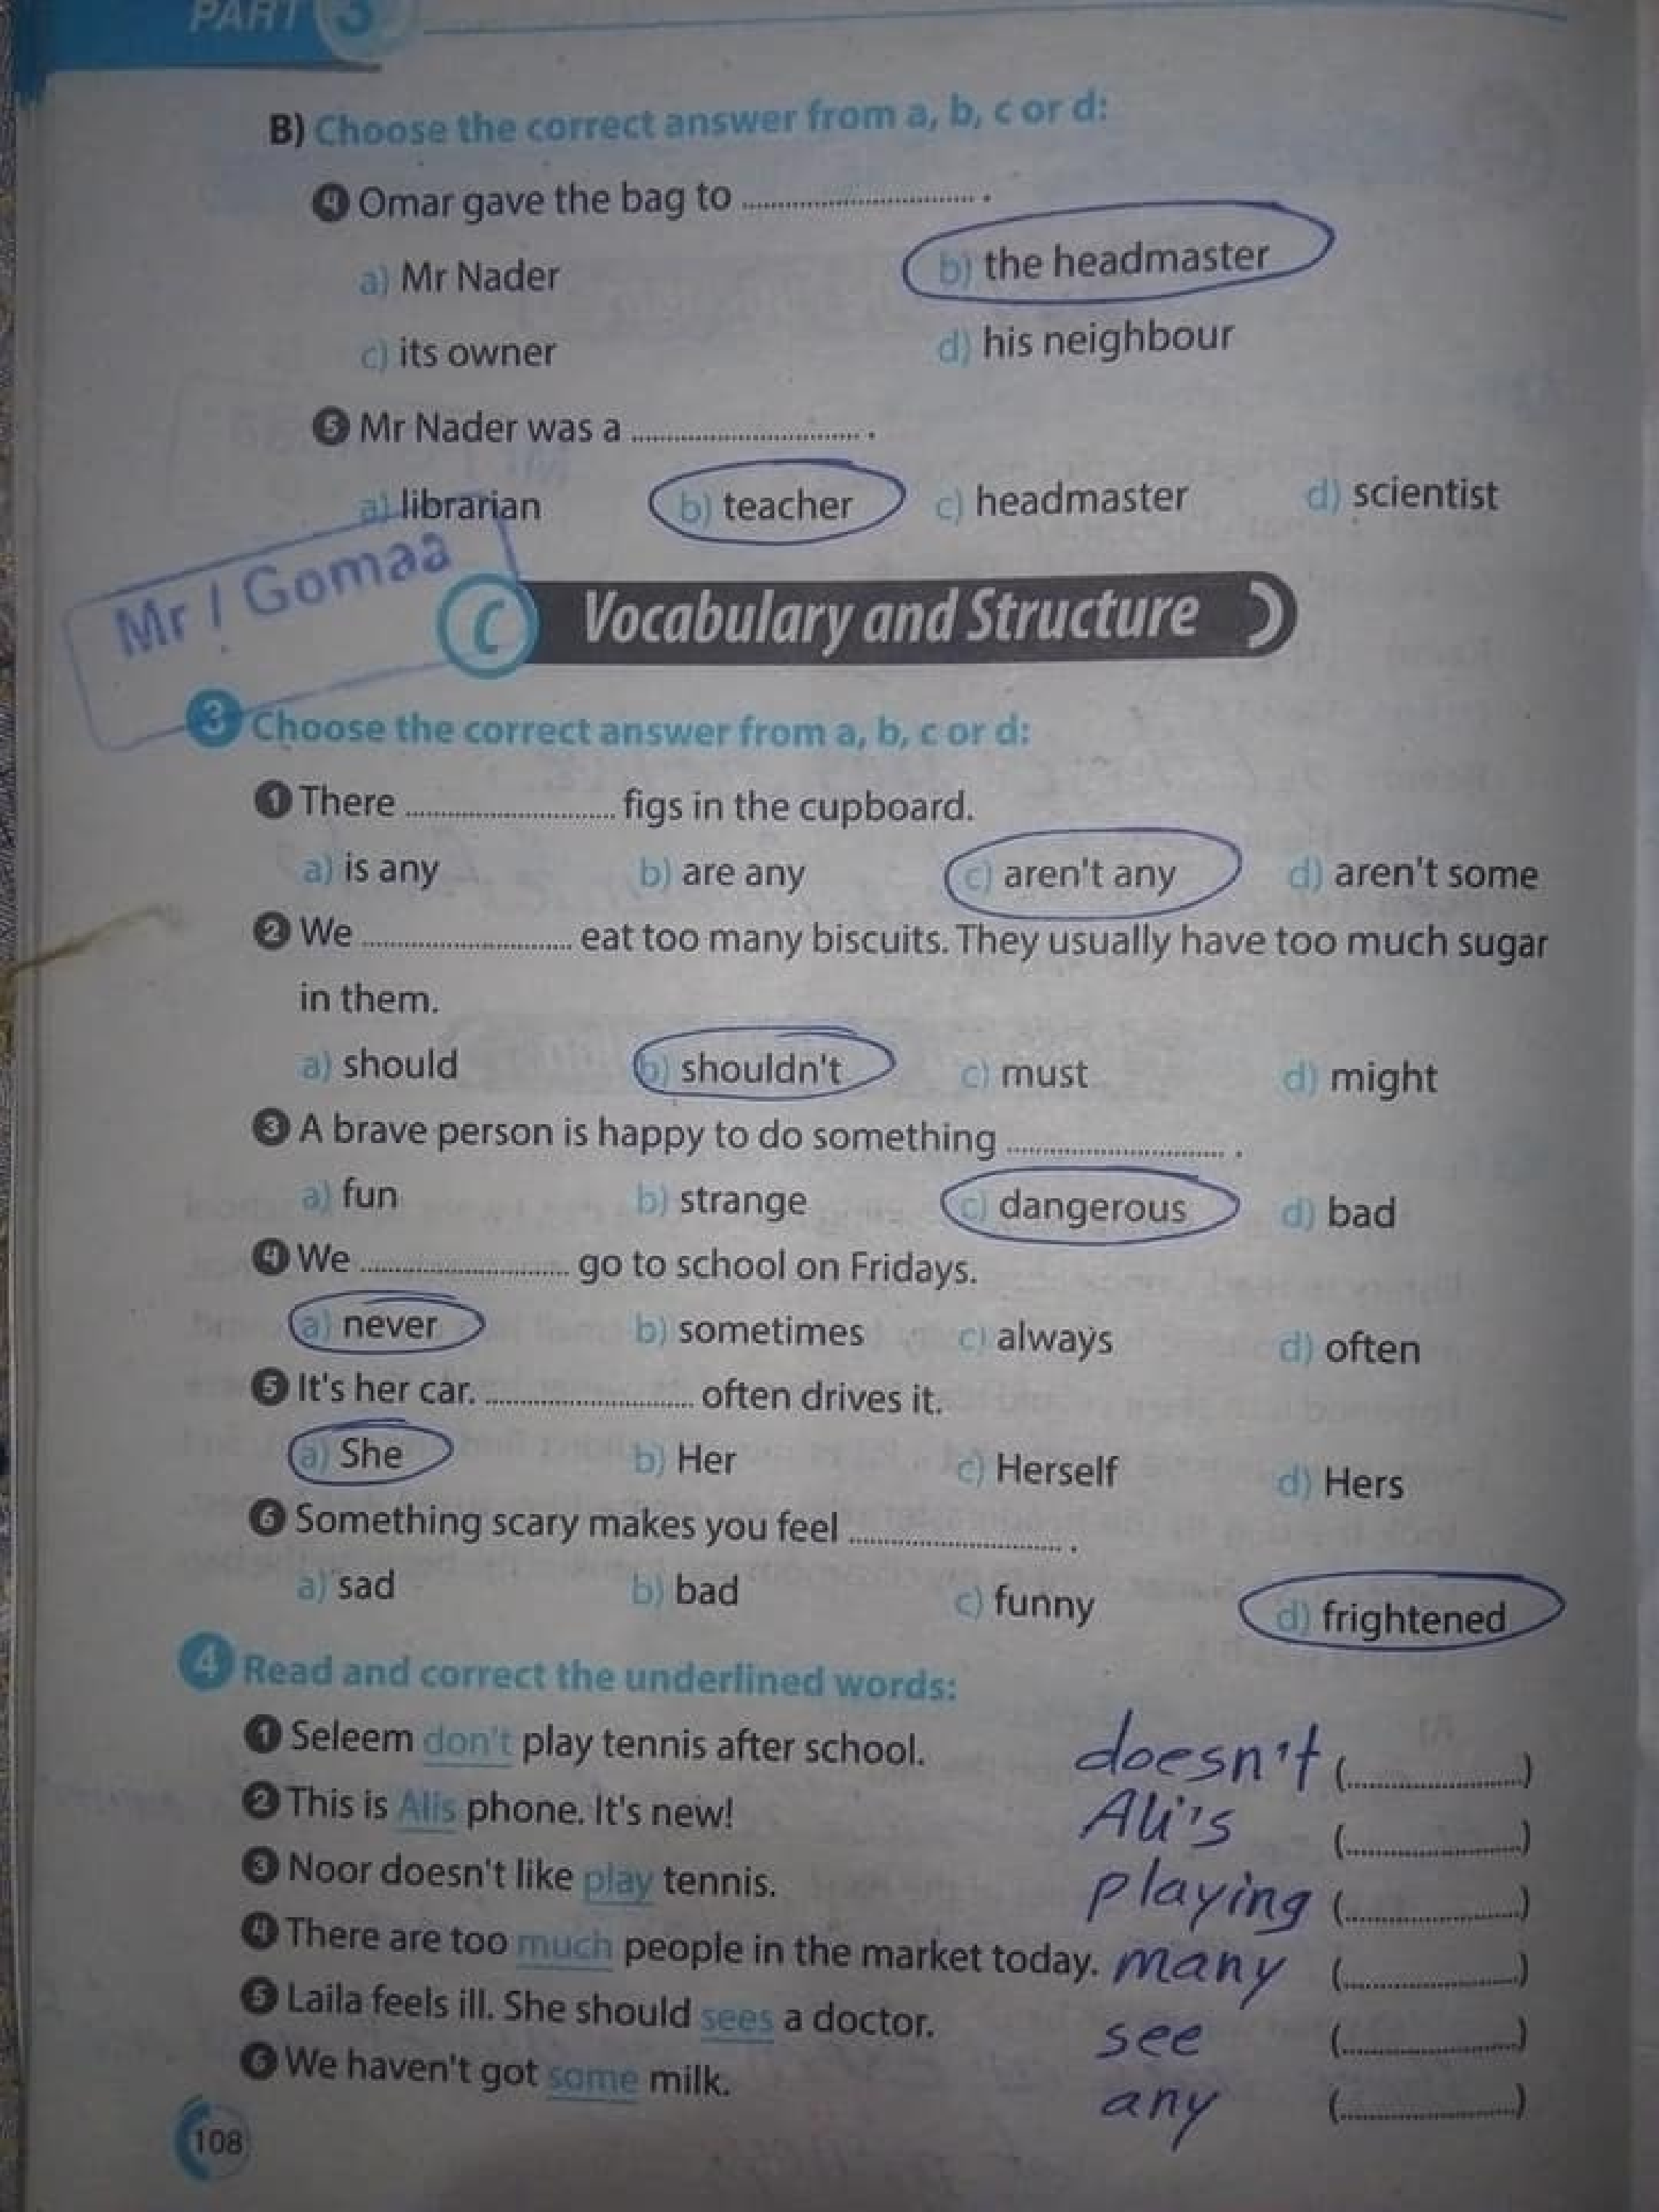 PART 3
B) Choose the correct answer from a, b, c or d:
4 Omar gave the bag to .............................. .
a) Mr Nader b) the headmaster
c) its owner d) his neighbour
5 Mr Nader was a .............................. .
a) librarian b) teacher c) headmaster d) scientist
Mr / Gomaa
C Vocabulary and Structure
3 Choose the correct answer from a, b, c or d:
1 There .............................. figs in the cupboard.
a) is any b) are any c) aren't any d) aren't some
2 We .............................. eat too many biscuits. They usually have too much sugar
in them.
a) should b) shouldn't c) must d) might
3 A brave person is happy to do something .............................. .
a) fun b) strange c) dangerous d) bad
4 We .............................. go to school on Fridays.
a) never b) sometimes c) always d) often
5 It's her car. .............................. often drives it.
a) She b) Her c) Herself d) Hers
6 Something scary makes you feel .............................. .
a) sad b) bad c) funny d) frightened
4 Read and correct the underlined words:
1 Seleem don't play tennis after school. doesn't (..............................)
2 This is Alis phone. It's new! Ali's (..............................)
3 Noor doesn't like play tennis. playing (..............................)
4 There are too much people in the market today. many (..............................)
5 Laila feels ill. She should sees a doctor. see (..............................)
6 We haven't got some milk. any (..............................)
108